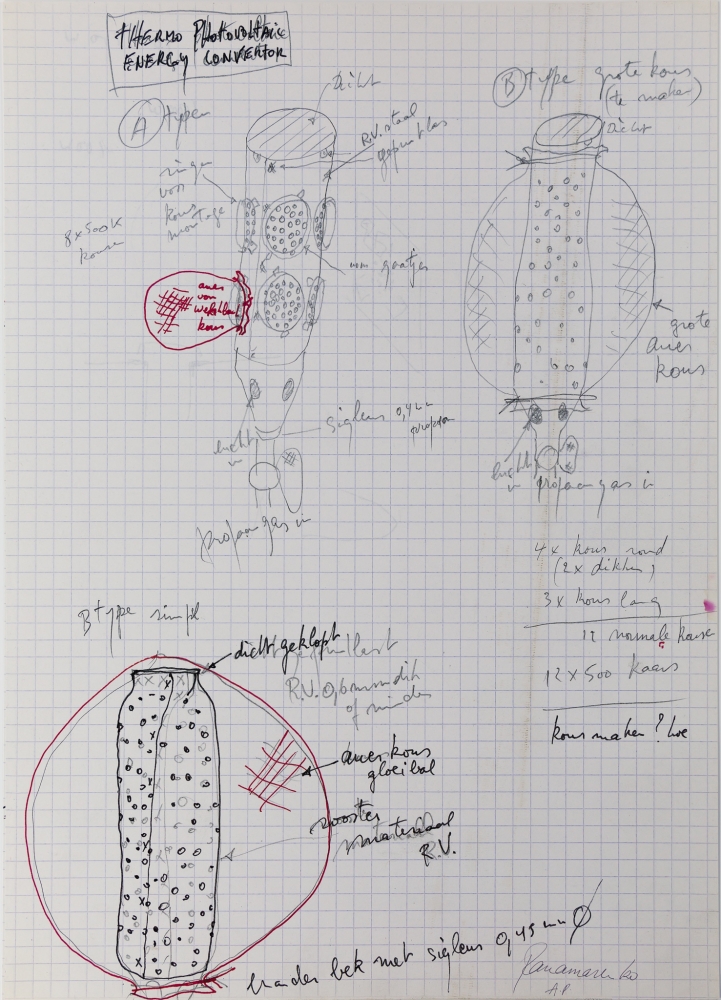 THERMO PHOTOVOLTAIC
ENERGY CONVERTOR
A type
dicht
R.V. staal
gepuntlas
ringen
voor
kous
montage
8x500K
kouse
gaatjes
auer
von
kous
lucht
in
sigleur 0,4mm
propaangas in
B type grote kous
(te maken)
Dicht
grote
auer
kous
lucht
in propaangas in
4x kous rond
(2x dikker)
3x kous lang
12 normale kouse
12x500 kaars
kous maken? hoe
B type simpl
dicht geklopt
R.V. 0,6mm dik
of minder
auerkous
gloeibal
rooster
materiaal
R.V.
brander bek met sigleur 0,45mm Ø
Panamarenko
AP